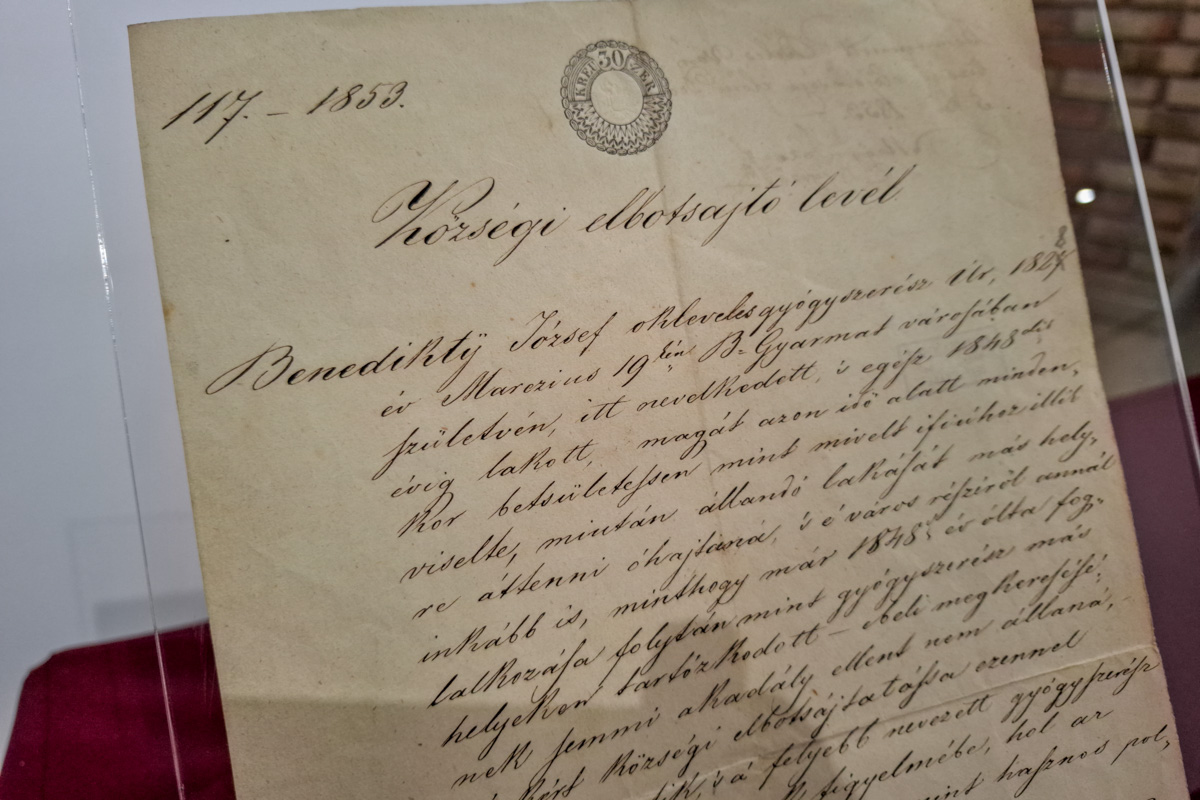 117. – 1853.
30
KREUZER
Községi elbotsajtó levél
Benediktÿ József okleveles gyógyszerész Úr, 182
év Marczius 19kén B=Gyarmat városában
születvén, itt nevelkedett, 's egész 1848dik
évig lakott, magát azon idő alatt minden,
kor betsületessen mint mivelt ifiúhoz illik
viselte, miután állandó lakását más hely,
re áttenni óhajtaná, 's é város részéről annál
inkább is, minthogy már 1848k év ólta fog,
lalkozása folytán mint gyógyszerész más
helyeken tartózkodott – ebeli megkeresésé,
nek semmi akadály ellent nem állana,
kért községi elbotsájtatássa ezennel
's á felyebb nevezett gyógyszerész
figyelmébe, hol az
mint hasznos pol,